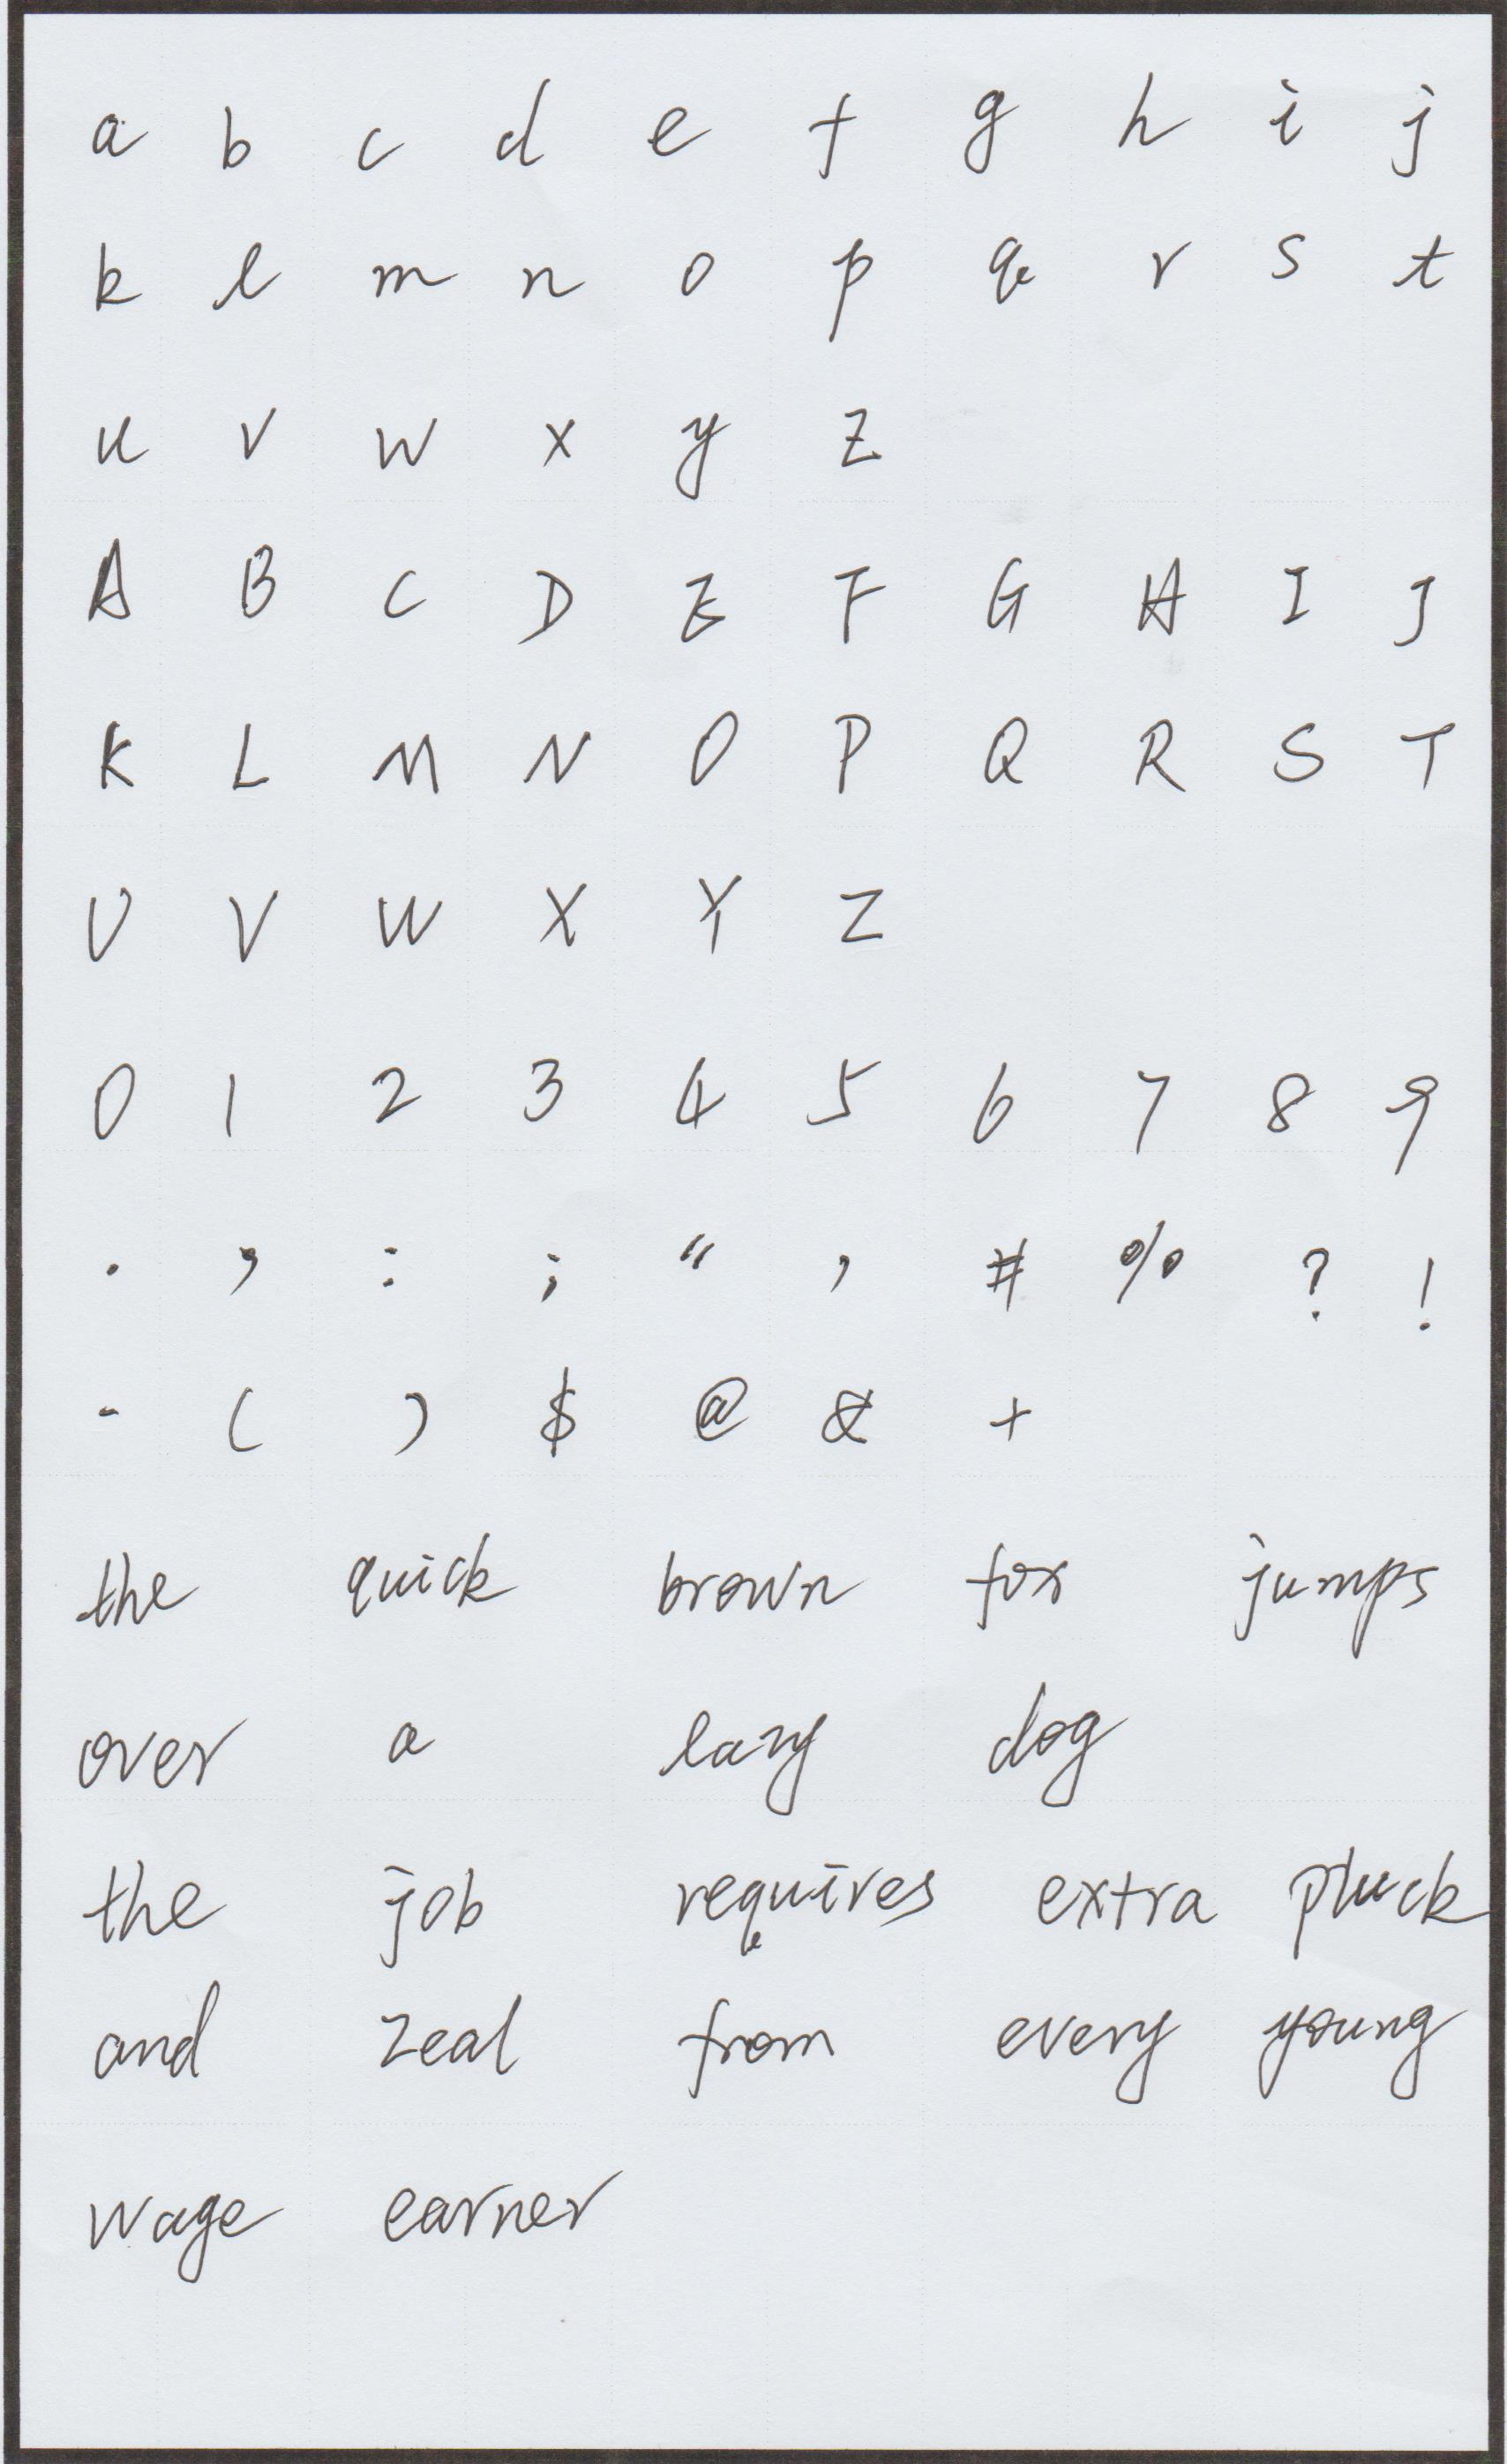 a b c d e f g h i j
k l m n o p q r s t
u v w x y z
A B C D E F G H I J
K L M N O P Q R S T
U V W X Y Z
0 1 2 3 4 5 6 7 8 9
. , : ; " ' # % ? !
- ( ) $ @ & +
the quick brown fox jumps
over a lazy dog
the job requires extra pluck
and zeal from every young
wage earner